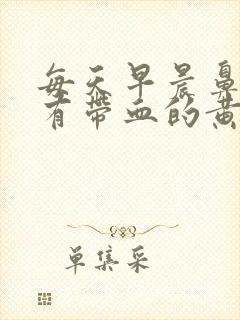 每天早晨鼻
有带血的黄
单集采